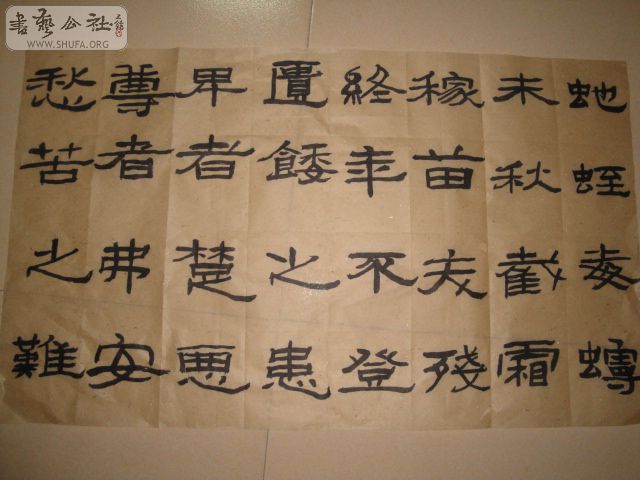 虵蛭毒蟃
未秋截霜
稼苗夭殘
終年不登
匱餧之患
卑者楚惡
尊者弗安
愁苦之難
書藝公社
WWW.SHUFA.ORG